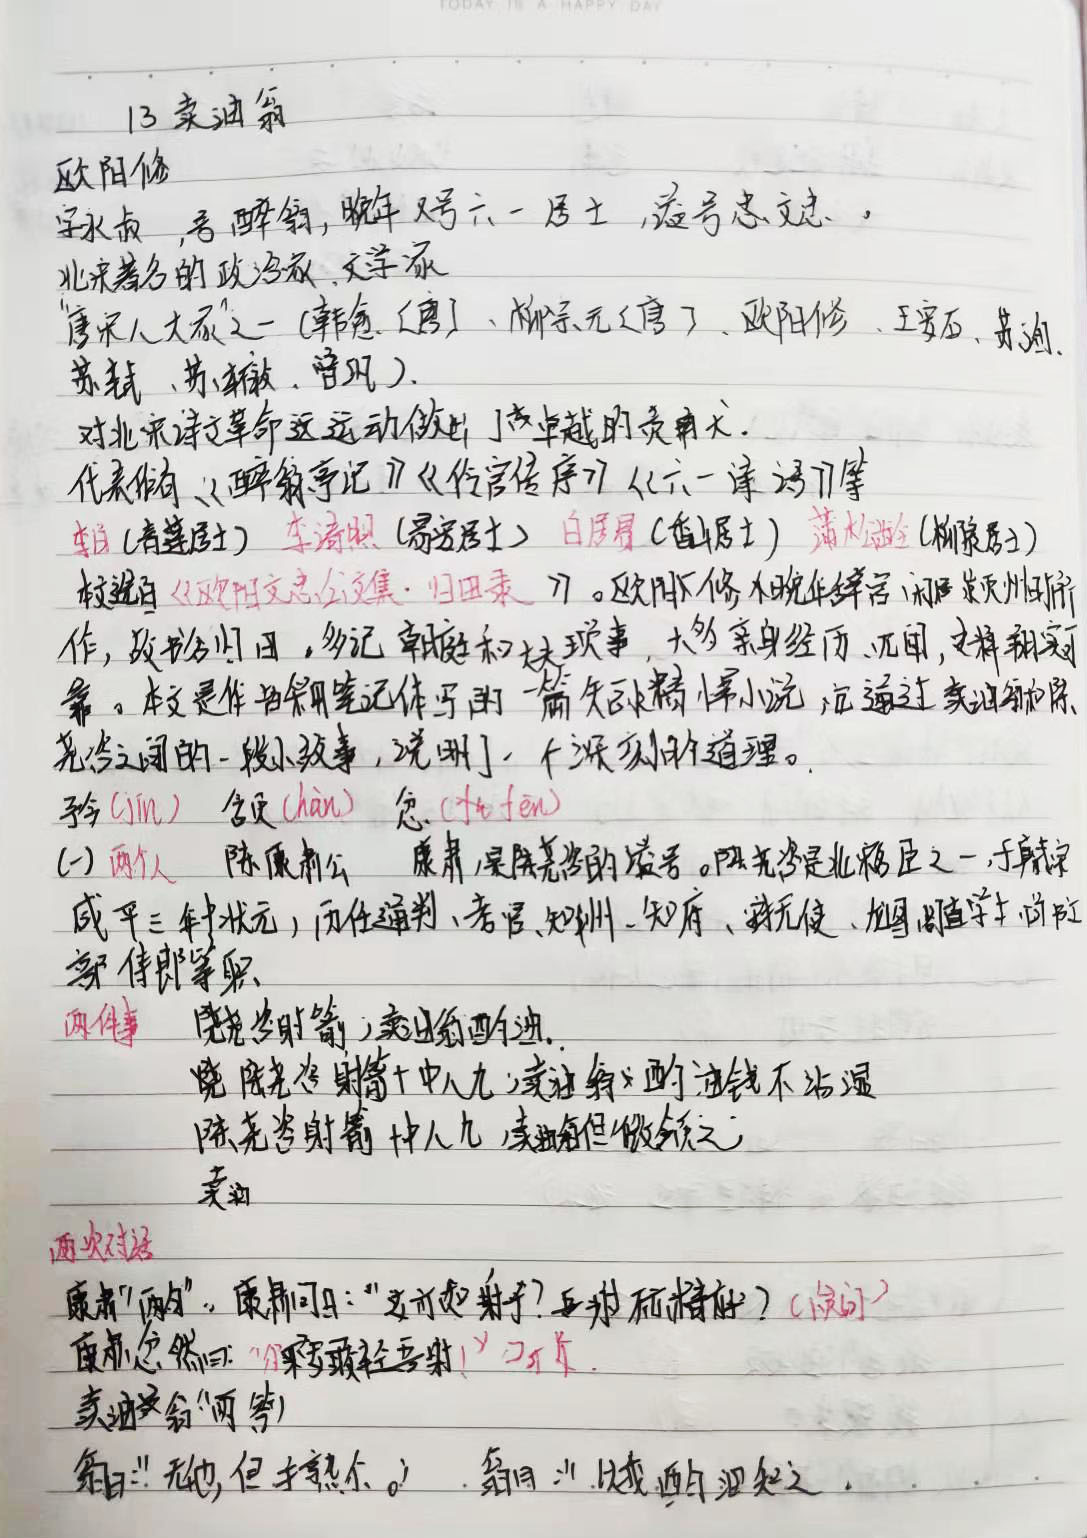 TODAY IS A HAPPY DAY
13 卖油翁
欧阳修
字永叔,号醉翁,晚年又号六一居士,谥号忠文忠。
北宋著名的政治家、文学家
"唐宋八大家"之一(韩愈〈唐〉、柳宗元〈唐〉、欧阳修、王安石、苏洵、
苏轼、苏辙、曾巩).
对北宋诗文革命运动做出了卓越的贡献.
代表作有《醉翁亭记》《伶官传序》《六一诗话》等
李白(青莲居士) 李清照(易安居士) 白居易(香山居士) 蒲松龄(柳泉居士)
本文选自《欧阳文忠公文集·归田录》。欧阳修晚年辞官闲居颍州时所
作,故书名归田。多记朝廷和士大夫琐事,大多亲身经历、见闻,史料翔实可
靠。本文是作者采用笔记体写的一篇 精悍小说,它通过卖油翁和陈
尧咨之间的一段小故事,说明了一个深刻的道理。
矜(jīn) 颔(hàn) 忿(fèn)
(一)两个人 陈康肃公 康肃,是陈尧咨的谥号。陈尧咨是北宋 臣之一,于真宗
咸平三年中状元,历任通判、考官、知州、知府、 龙图阁直学士、尚书工
部侍郎等职、
两件事 陈尧咨射箭,卖油翁酌油.
陈尧咨射箭十中八九,卖油翁酌油钱不沾湿
陈尧咨射箭十中八九,卖油翁但微颔之
卖油
两次对话
康肃"两问",康肃问曰:"汝亦知射乎?吾射不亦精乎?
康肃忿然曰:"尔安敢轻吾射!"
卖油翁"两答"
翁曰:"无他,但手熟尔。" 翁曰:"以我酌油知之.